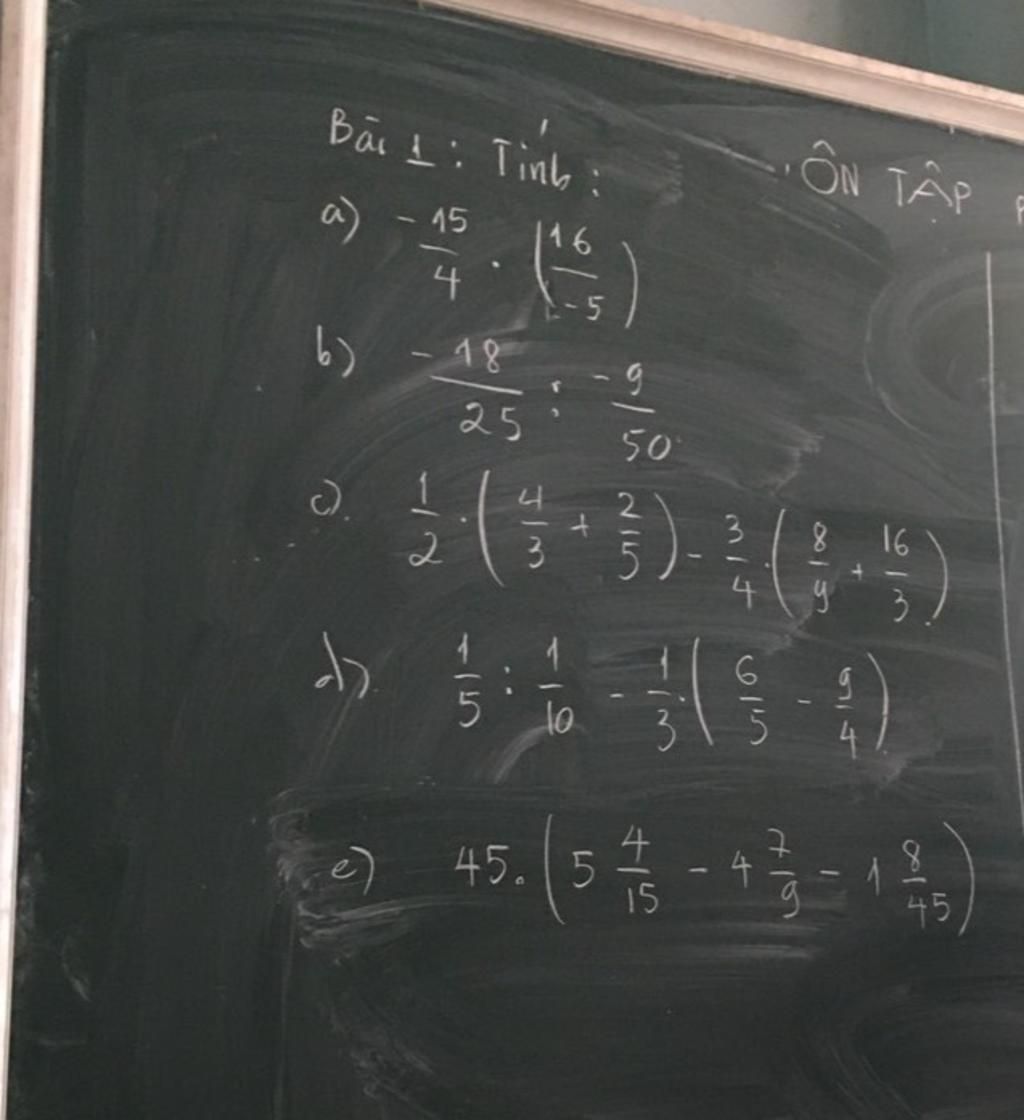 Bài 1 : Tính :
ÔN TẬP
a) -15/4 . (16/-5)
b) -18/25 : -9/50
c). 1/2 . (4/3 + 2/5) - 3/4 . (8/9 + 16/3)
d) 1/5 : 1/10 - 1/3 . (6/5 - 9/4)
e) 45. (5 4/15 - 4 7/9 - 1 8/45)